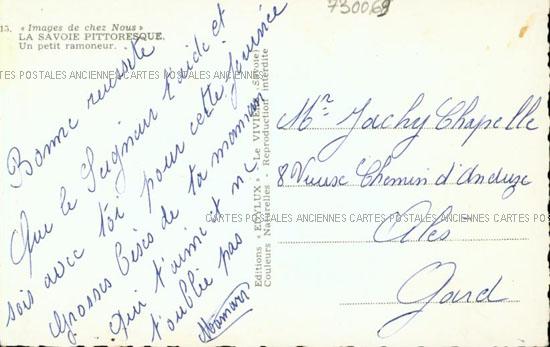 73006g
15. « Images de chez Nous »
LA SAVOIE PITTORESQUE.
Un petit ramoneur.
Bonne réussite
Que le Seigneur t'aide et
sois avec toi pour cette journée
Grosses bises de ta maman
qui t'aime et ne
t'oublie pas
Maman
Editions « EDYLUX » - LE VIVIER (Savoie)
Couleurs Naturelles - Reproduction interdite
Mr Jacky Chapelle
8 Vieux Chemin d'Anduze
Ales
Gard
CARTES POSTALES ANCIENNES CARTES POSTALES ANCIENNES CARTES POSTALES
CARTES POSTALES ANCIENNES CARTES POSTALES ANCIENNES CARTES POSTALES